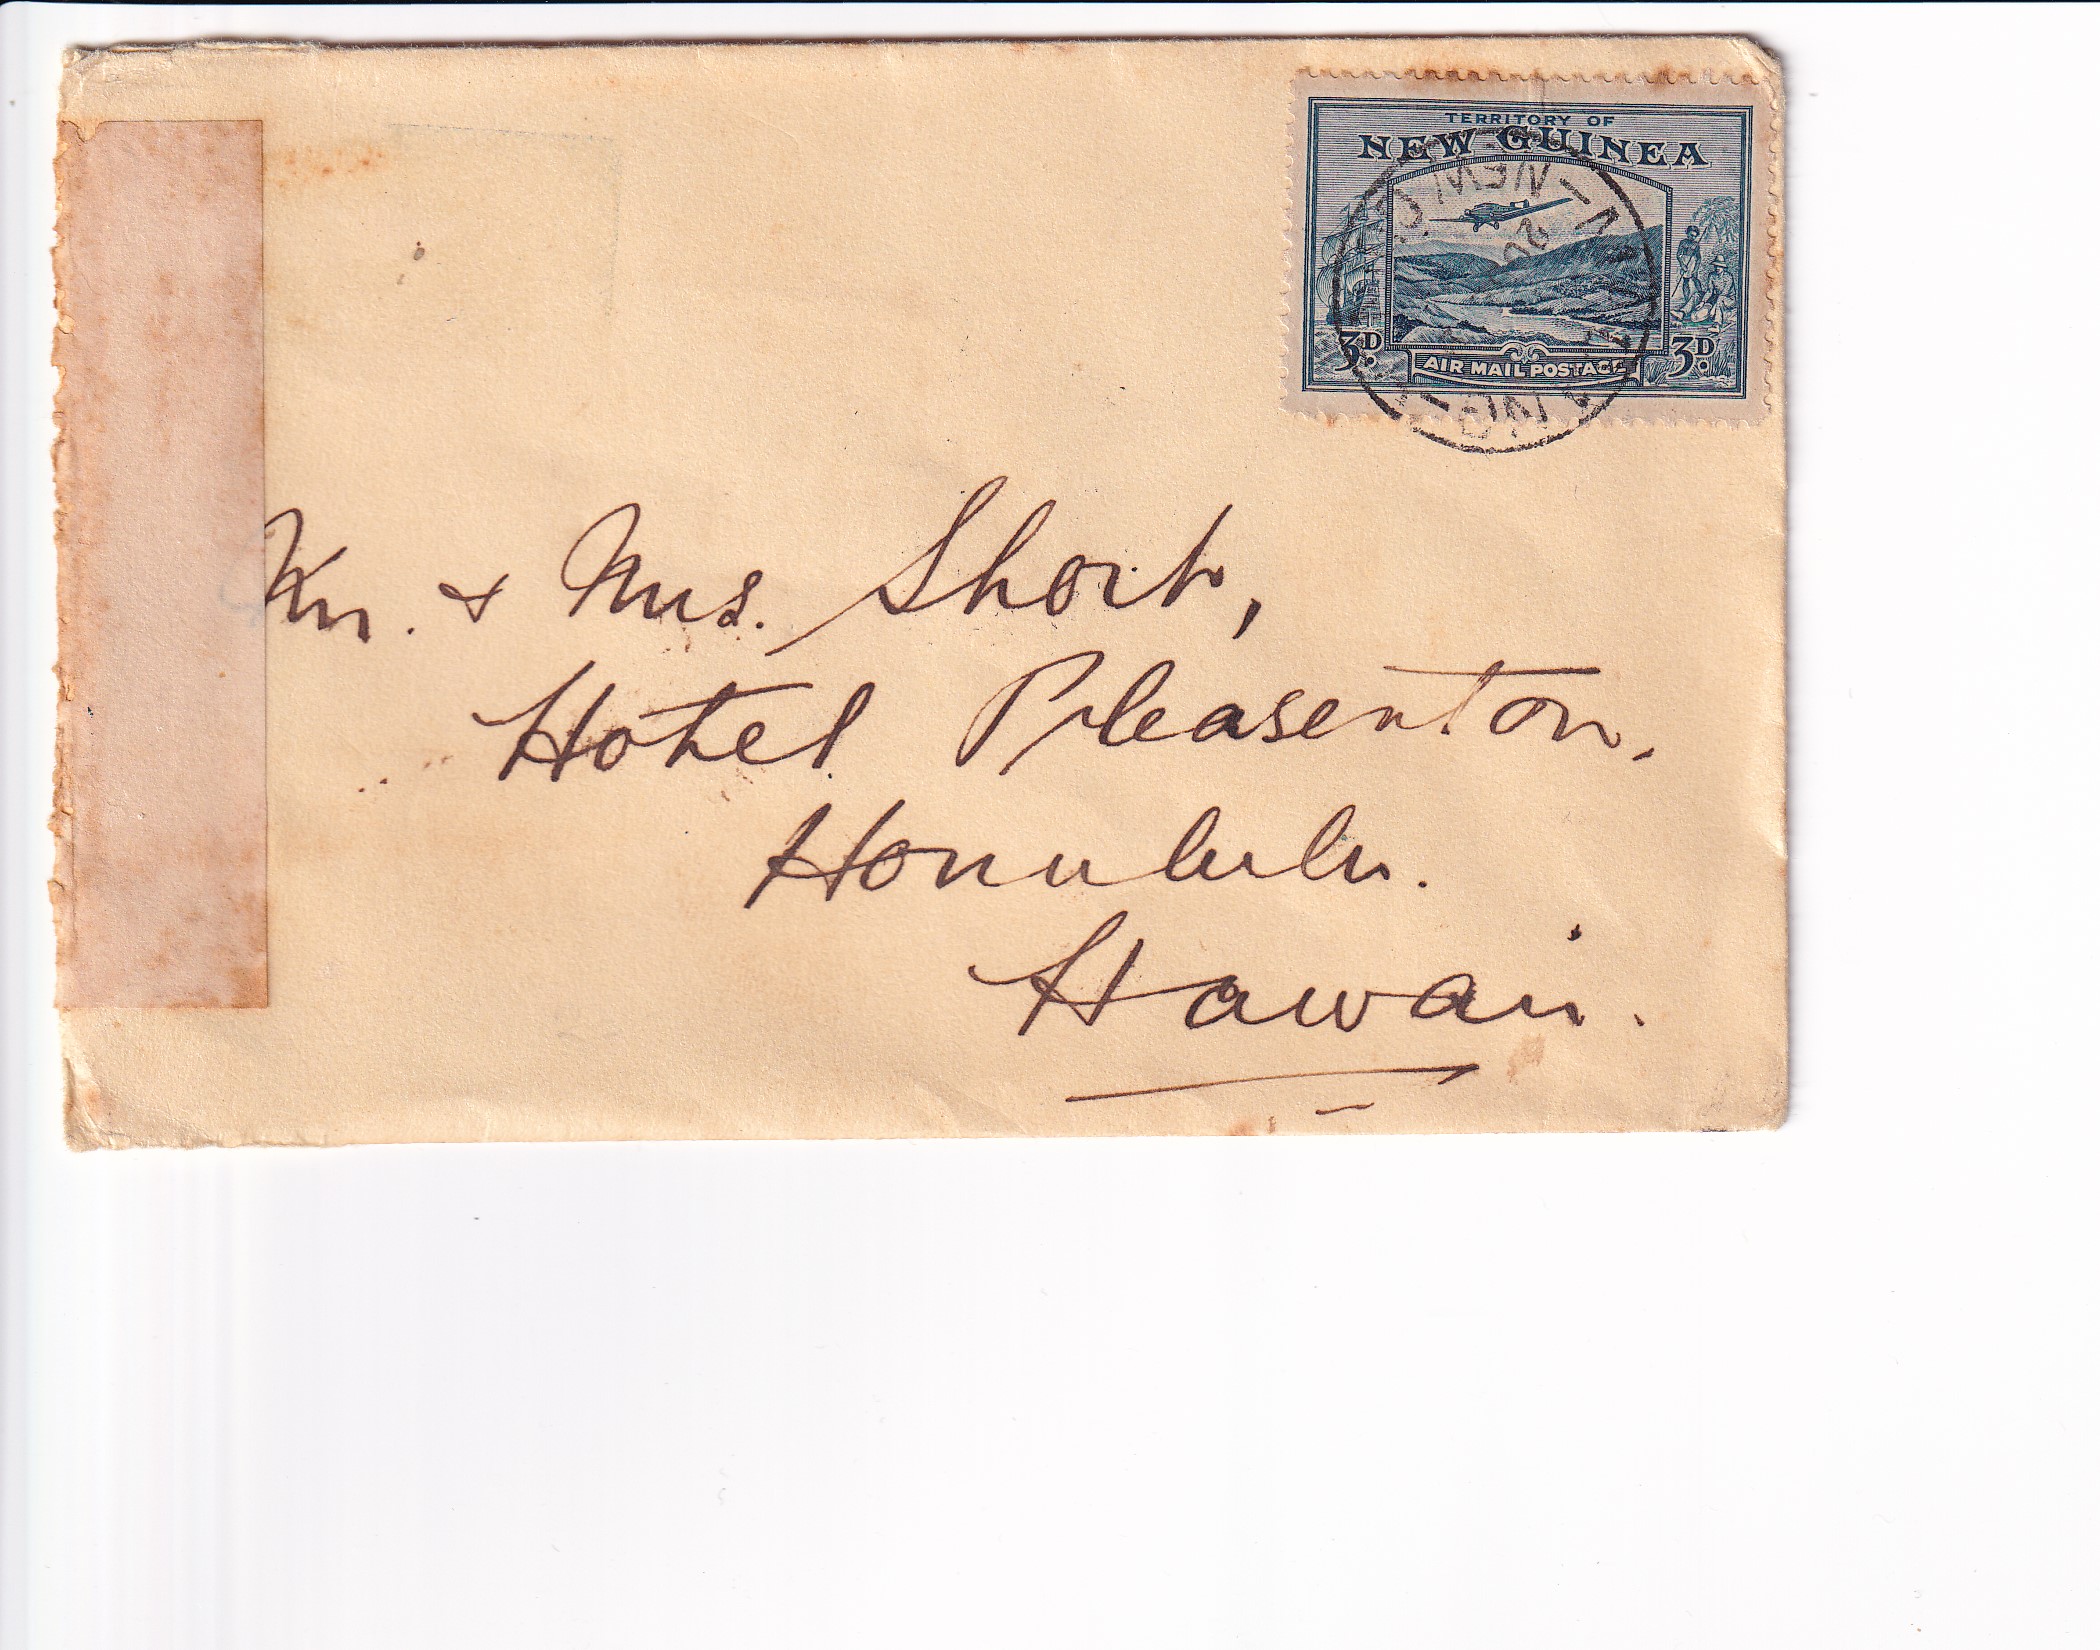 TERRITORY OF
NEW GUINEA
3D. 3D.
AIR MAIL POSTAGE
NEW
Mr. & Mrs. Short,
Hotel Pleasenton.
Honululu.
Hawaii.